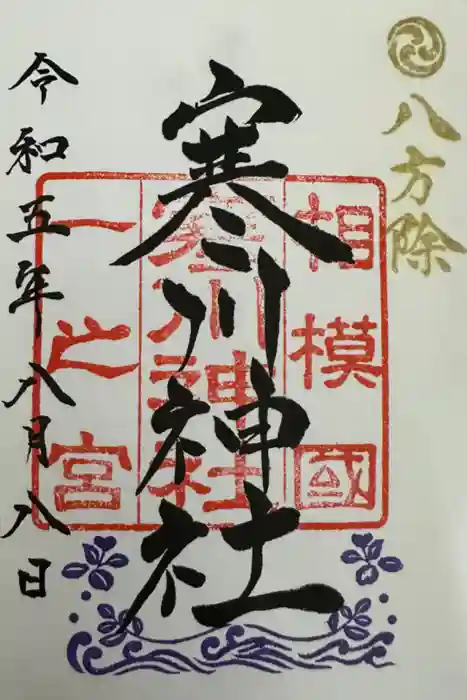 八方除
寒川神社
相模國
寒川神社
一之宮
令和五年八月八日